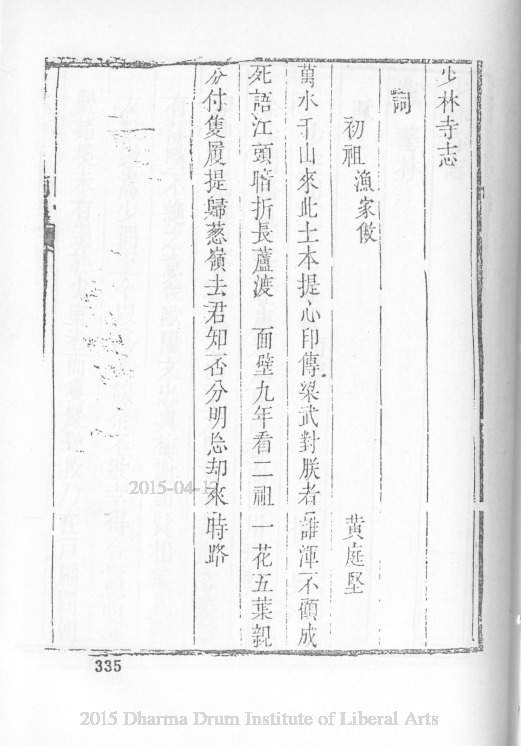 少林寺志
詞
初祖漁家傲 黃庭堅
萬水千山來此土本提心印傳梁武對朕者誰渾不顧成
死語江頭暗折長蘆渡 面壁九年看二祖一花五葉親
分付隻履提歸蔥嶺去君知否分明忘却來時路
335
2015-04-1
2015 Dharma Drum Institute of Liberal Arts